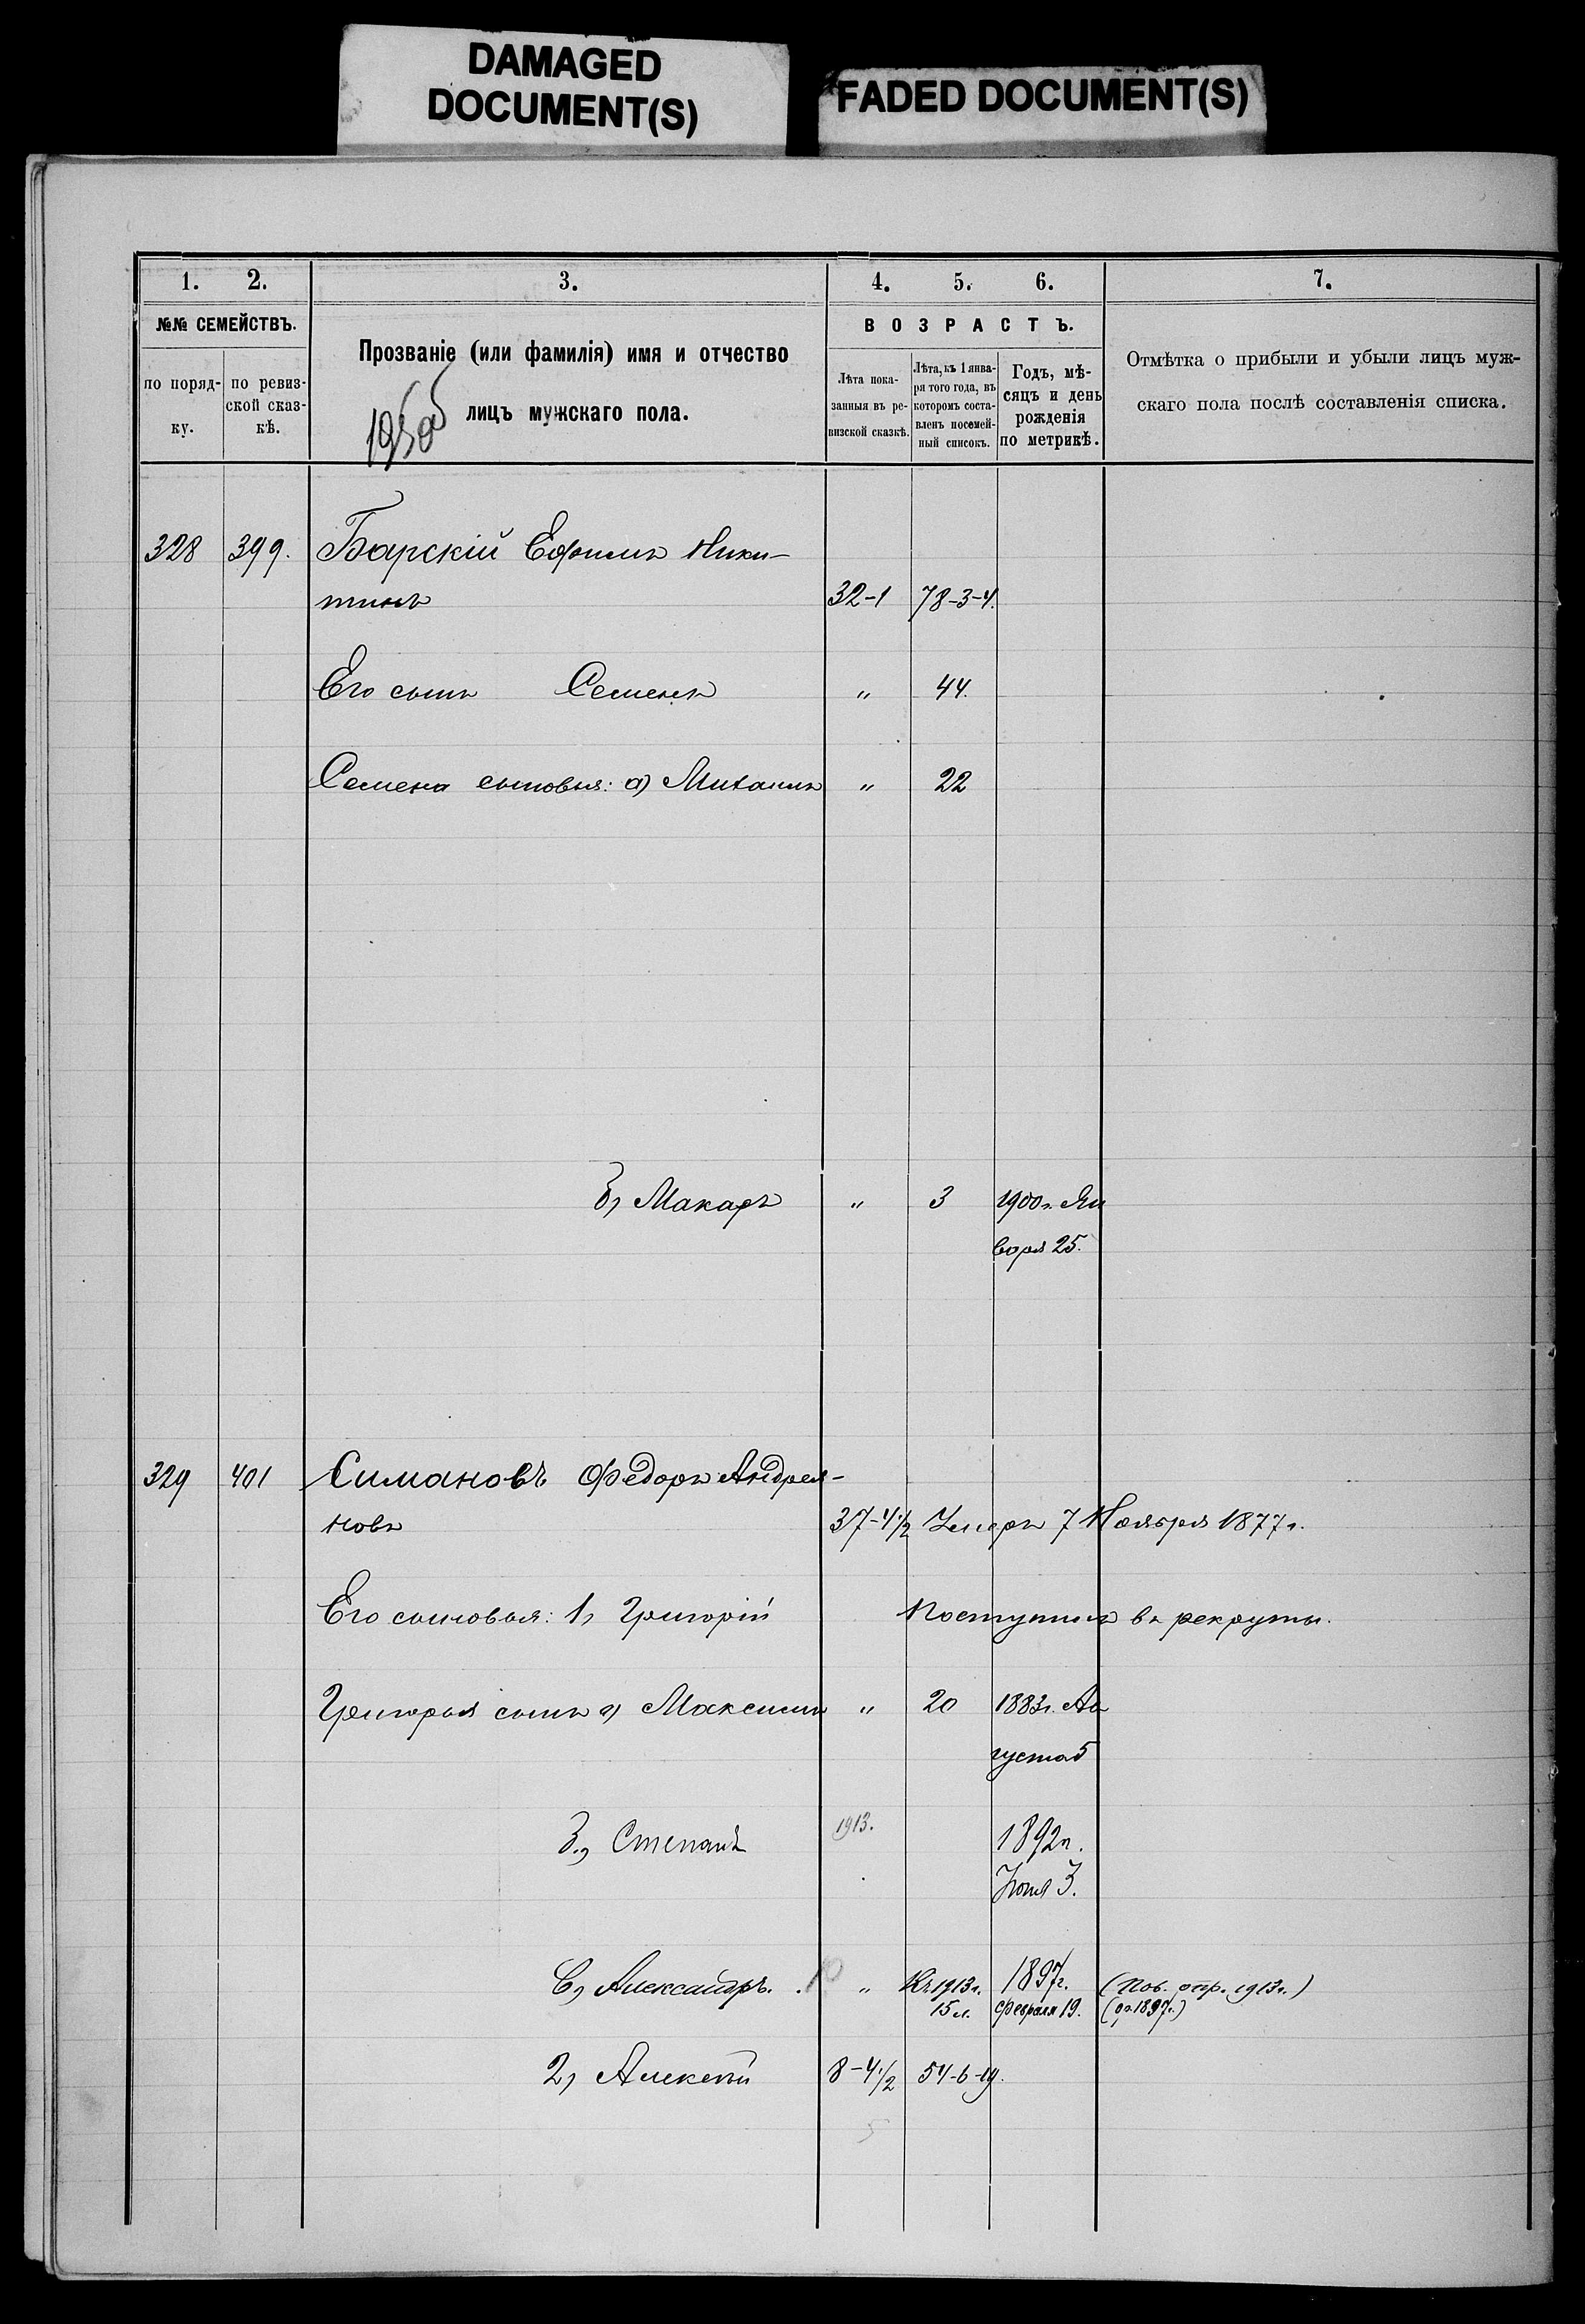 DAMAGED
DOCUMENT(S)
FADED DOCUMENT(S)
1. 2. 3. 4. 5. 6. 7.
№№ СЕМЕЙСТВЪ.
по поряд-
ку.
по ревиз-
ской сказ-
кѣ.
Прозваніе (или фамилія) имя и отчество
лицъ мужскаго пола.
ВОЗРАСТЪ.
Лѣта пока-
занныя въ ре-
визской сказкѣ.
Лѣта, къ 1 янва-
ря того года, въ
которомъ соста-
вленъ посемей-
ный списокъ.
Годъ, мѣ-
сяцъ и день
рожденія
по метрикѣ.
Отмѣтка о прибыли и убыли лицъ муж-
скаго пола послѣ составленія списка.
328 399. Барскій Ефимъ Ники-
тинъ 32-1 78-3-4.
Его сынъ Семенъ " 44.
Семена сыновья: а) Михаилъ " 22
б) Макаръ " 3 1900 г. Ян
варя 25.
329 401 Симановъ Федоръ Андрея-
новъ 37-4 1/2 Умеръ 7 Ноября 1877 г.
Его сыновья: 1) Григорій Поступилъ въ рекруты.
Григорья сынъ а) Максимъ " 20 1883 г. Ав
густа 5
1913.
б) Степанъ 1892 г.
Іюля 3.
в) Александръ. " Къ 1913 г. 1897 г. (Пов. отр. 1913 г.)
15 л. Февраля 19. (р. 1897 г.)
2) Алексѣй 8-4 1/2 54-6-19.